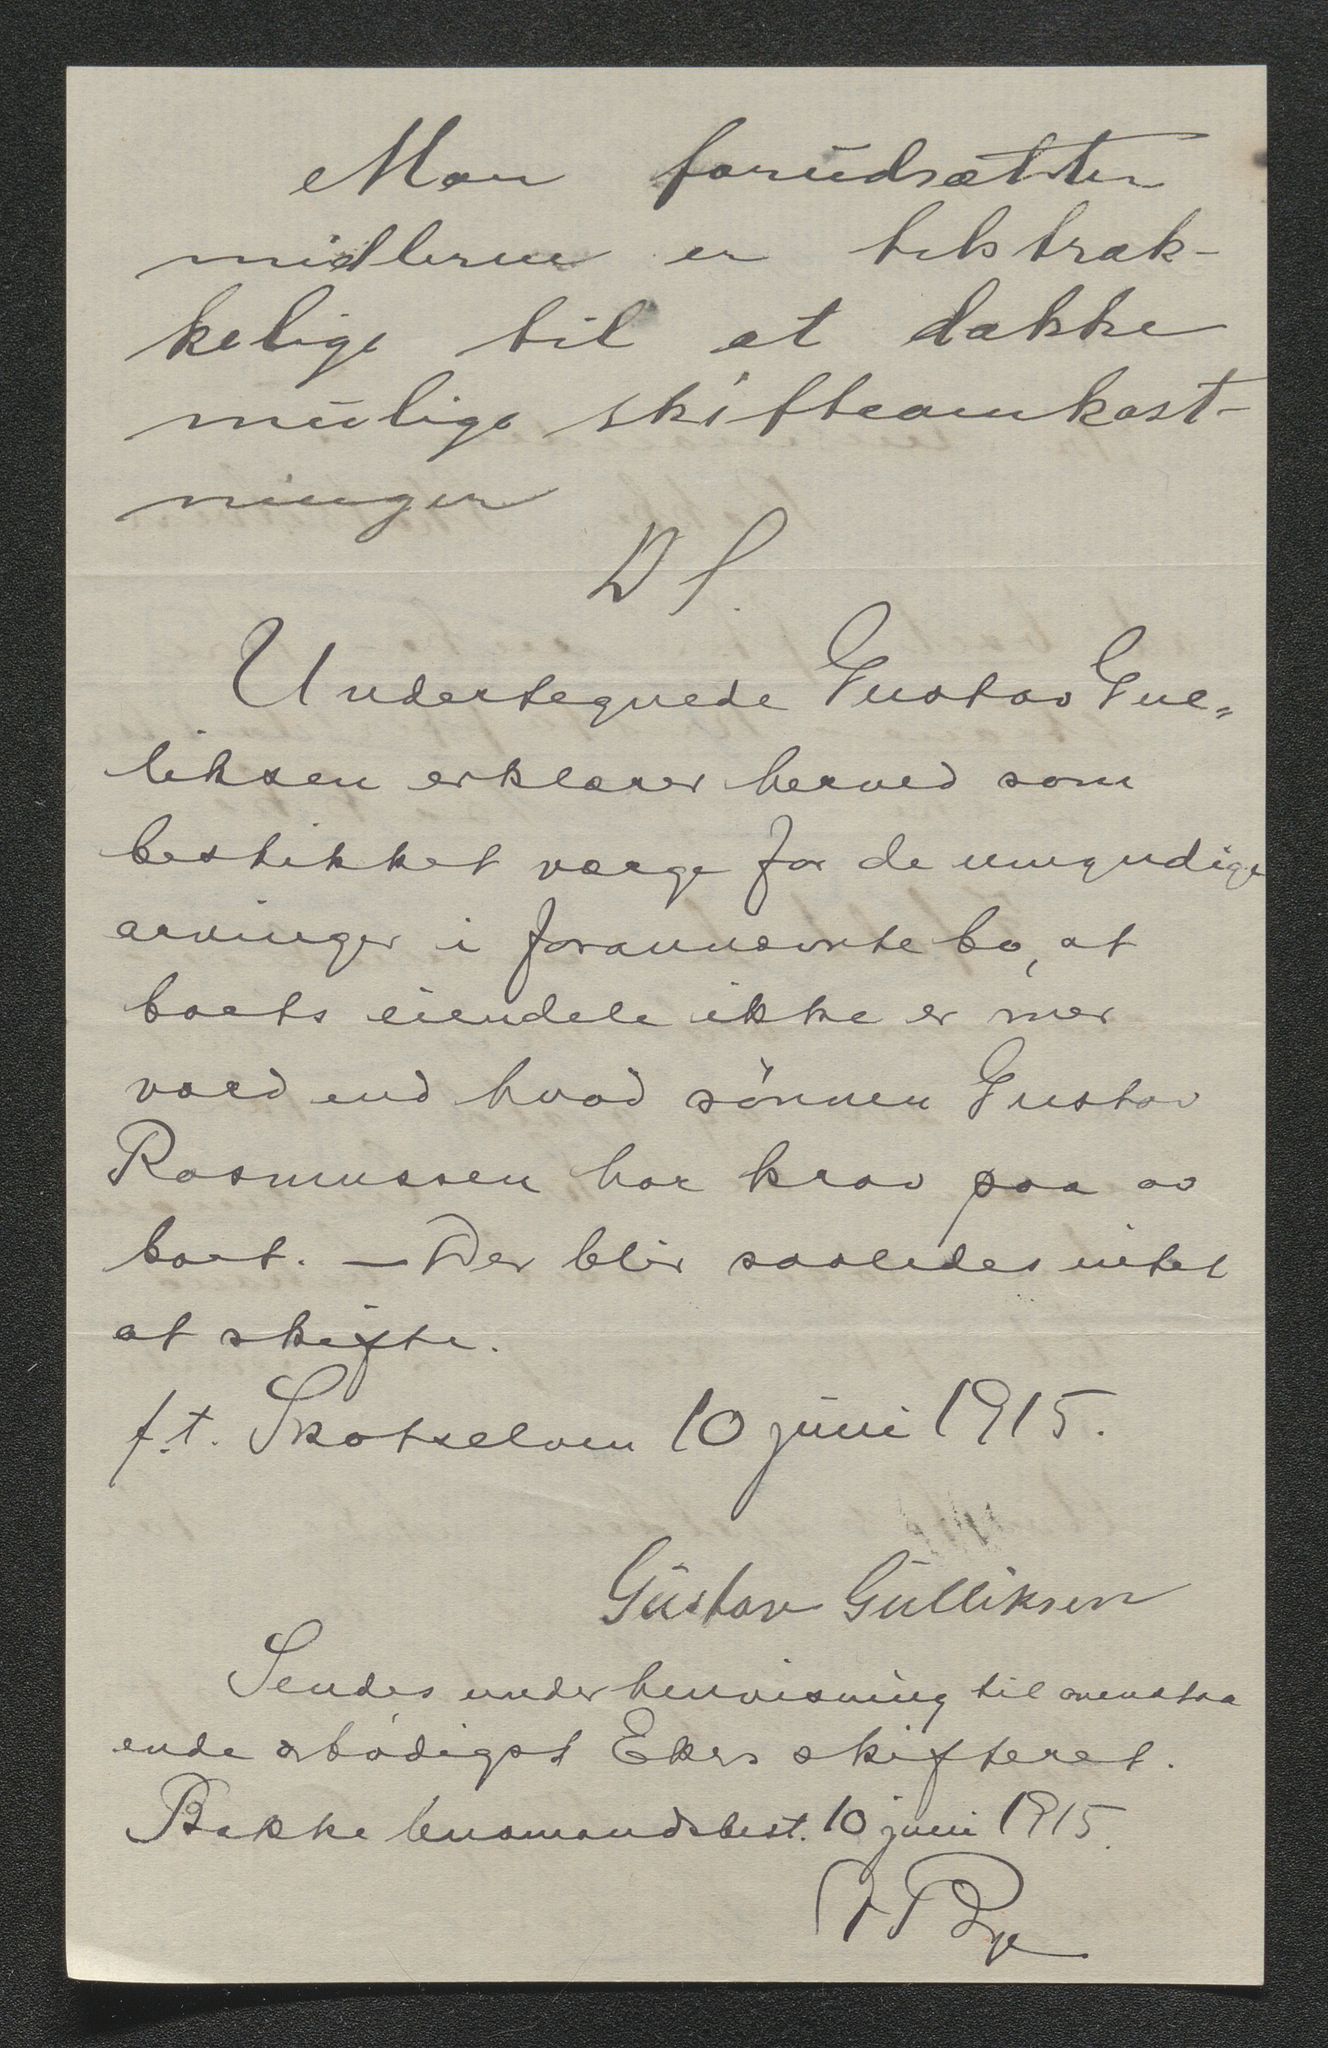 Man forudsætter
midlerne er tilstræk-
kelige til at dække
mulige skifteomkost-
ninger
D S.
Undertegnede Gustav Gul-
liksen erklærer herved som
beskikket værge for de umyndige
arvinger i forannævnte bo, at
boets eiendele ikke er mer
værd end hvad sønnen Gustav
Rasmussen har krav paa av
boet. – Der blir saaledes intet
at skifte.
f.t. Skotselven 10 juni 1915.
Gustav Gulliksen
Sendes under henvisning til ovenstaa
ende ærbødigst Ekers skifteret.
Bakke lensmandsbest. 10 juni 1915.